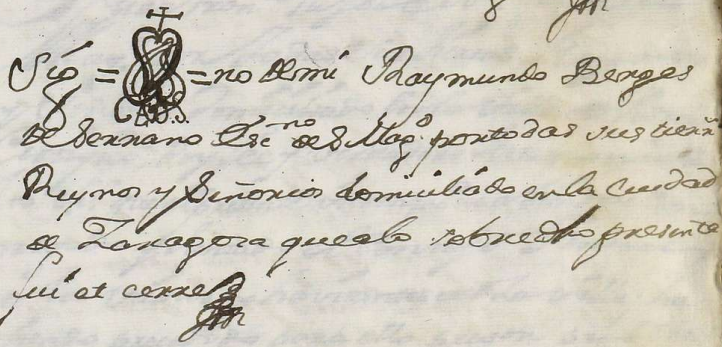 Sig = = no de mi Raymundo Berges
de Serrano Esc.no de S Mag.d por todas sus tierr.s
Reynos y Señorios domiciliado en la Ciudad
de Zaragoza que a lo sobredho presente
fui et cerre